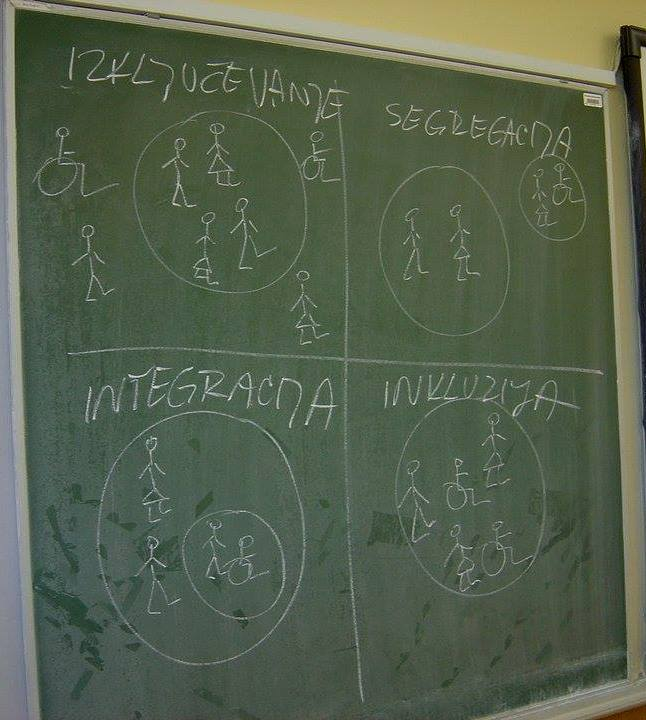 IZKLJUČEVANJE
SEGREGACIJA
INTEGRACIJA
INKLUZIJA